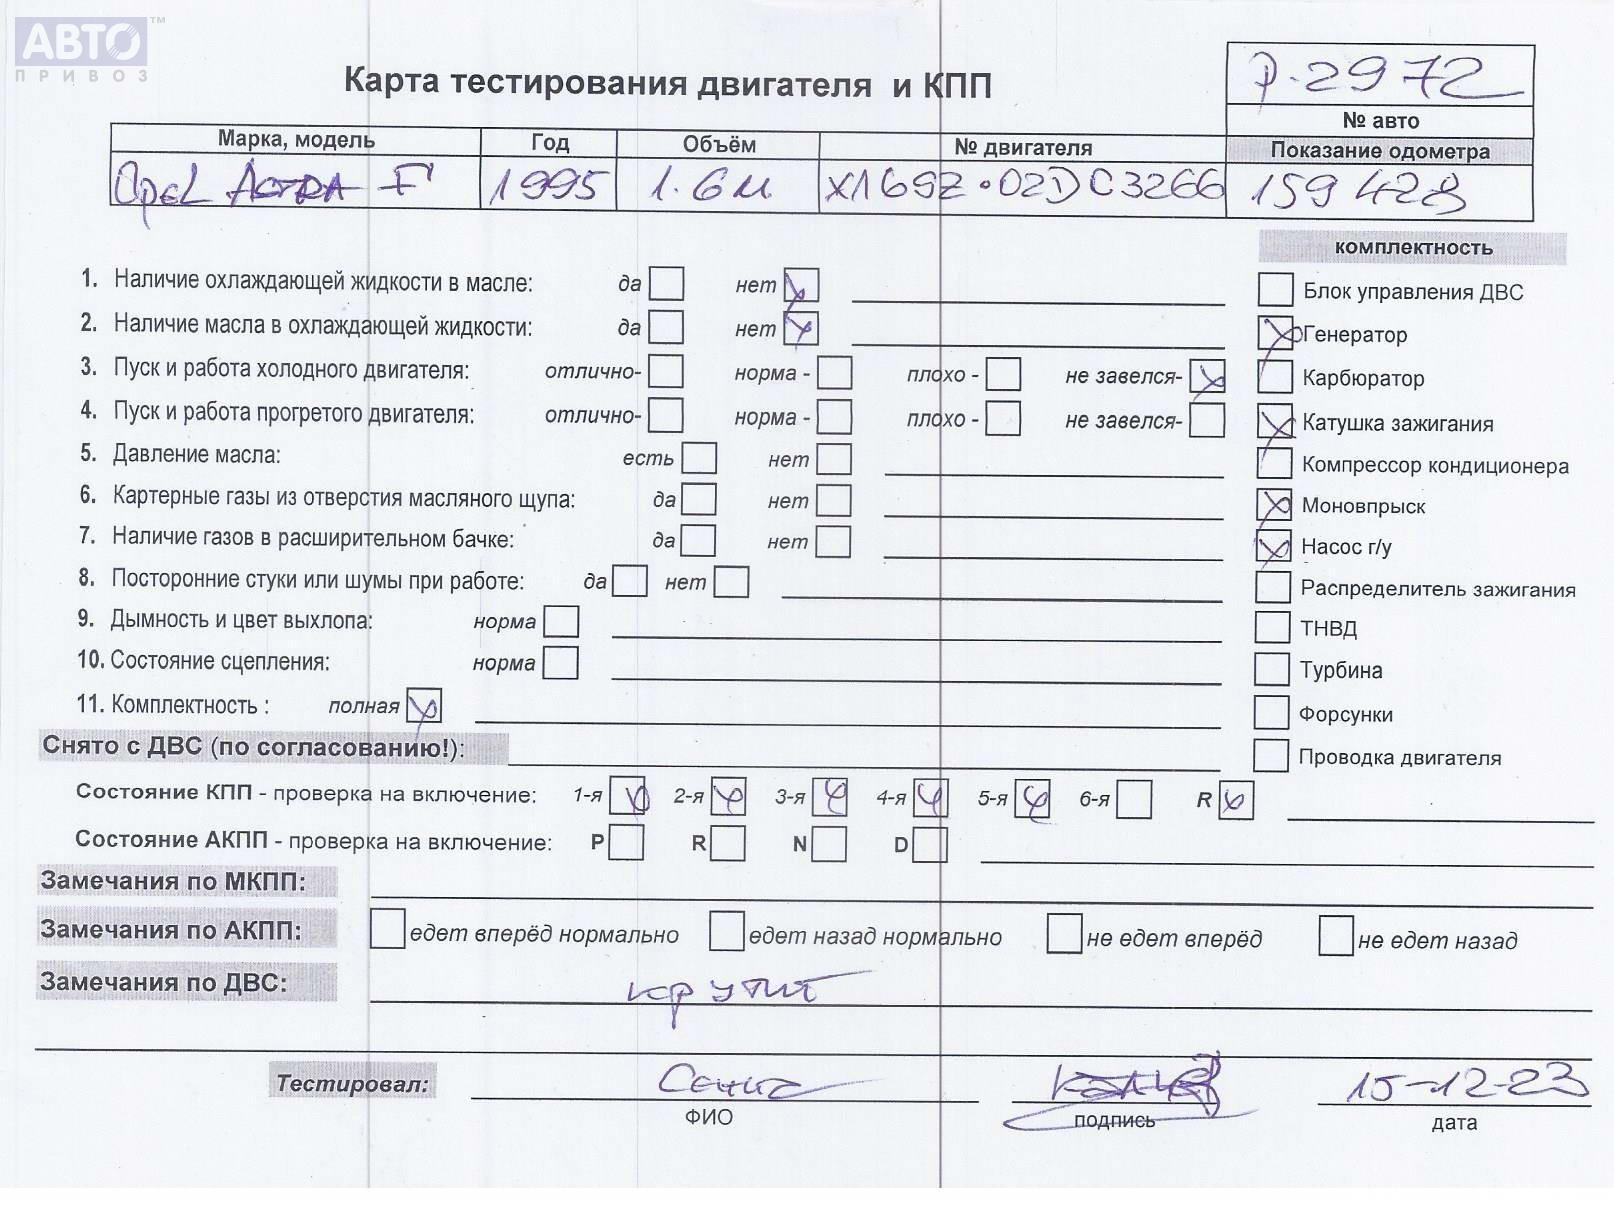 АВТО™
ПРИВОЗ
Карта тестирования двигателя и КПП
Р-2972
№ авто
Марка, модель Год Объём № двигателя Показание одометра
Opel Astra F 1995 1.6И X16SZ•02DC3266 159428
комплектность
1. Наличие охлаждающей жидкости в масле: да нет
Блок управления ДВС
2. Наличие масла в охлаждающей жидкости: да нет
Генератор
3. Пуск и работа холодного двигателя: отлично- норма - плохо - не завелся-
Карбюратор
4. Пуск и работа прогретого двигателя: отлично- норма - плохо - не завелся-
Катушка зажигания
5. Давление масла: есть нет
Компрессор кондиционера
6. Картерные газы из отверстия масляного щупа: да нет
Моновпрыск
7. Наличие газов в расширительном бачке: да нет
Насос г/у
8. Посторонние стуки или шумы при работе: да нет
Распределитель зажигания
9. Дымность и цвет выхлопа: норма
ТНВД
10. Состояние сцепления: норма
Турбина
11. Комплектность : полная
Форсунки
Снято с ДВС (по согласованию!):
Проводка двигателя
Состояние КПП - проверка на включение: 1-я 2-я 3-я 4-я 5-я 6-я R
Состояние АКПП - проверка на включение: P R N D
Замечания по МКПП:
Замечания по АКПП: едет вперёд нормально едет назад нормально не едет вперёд не едет назад
Замечания по ДВС: крутит
Тестировал: 15-12-23
ФИО подпись дата